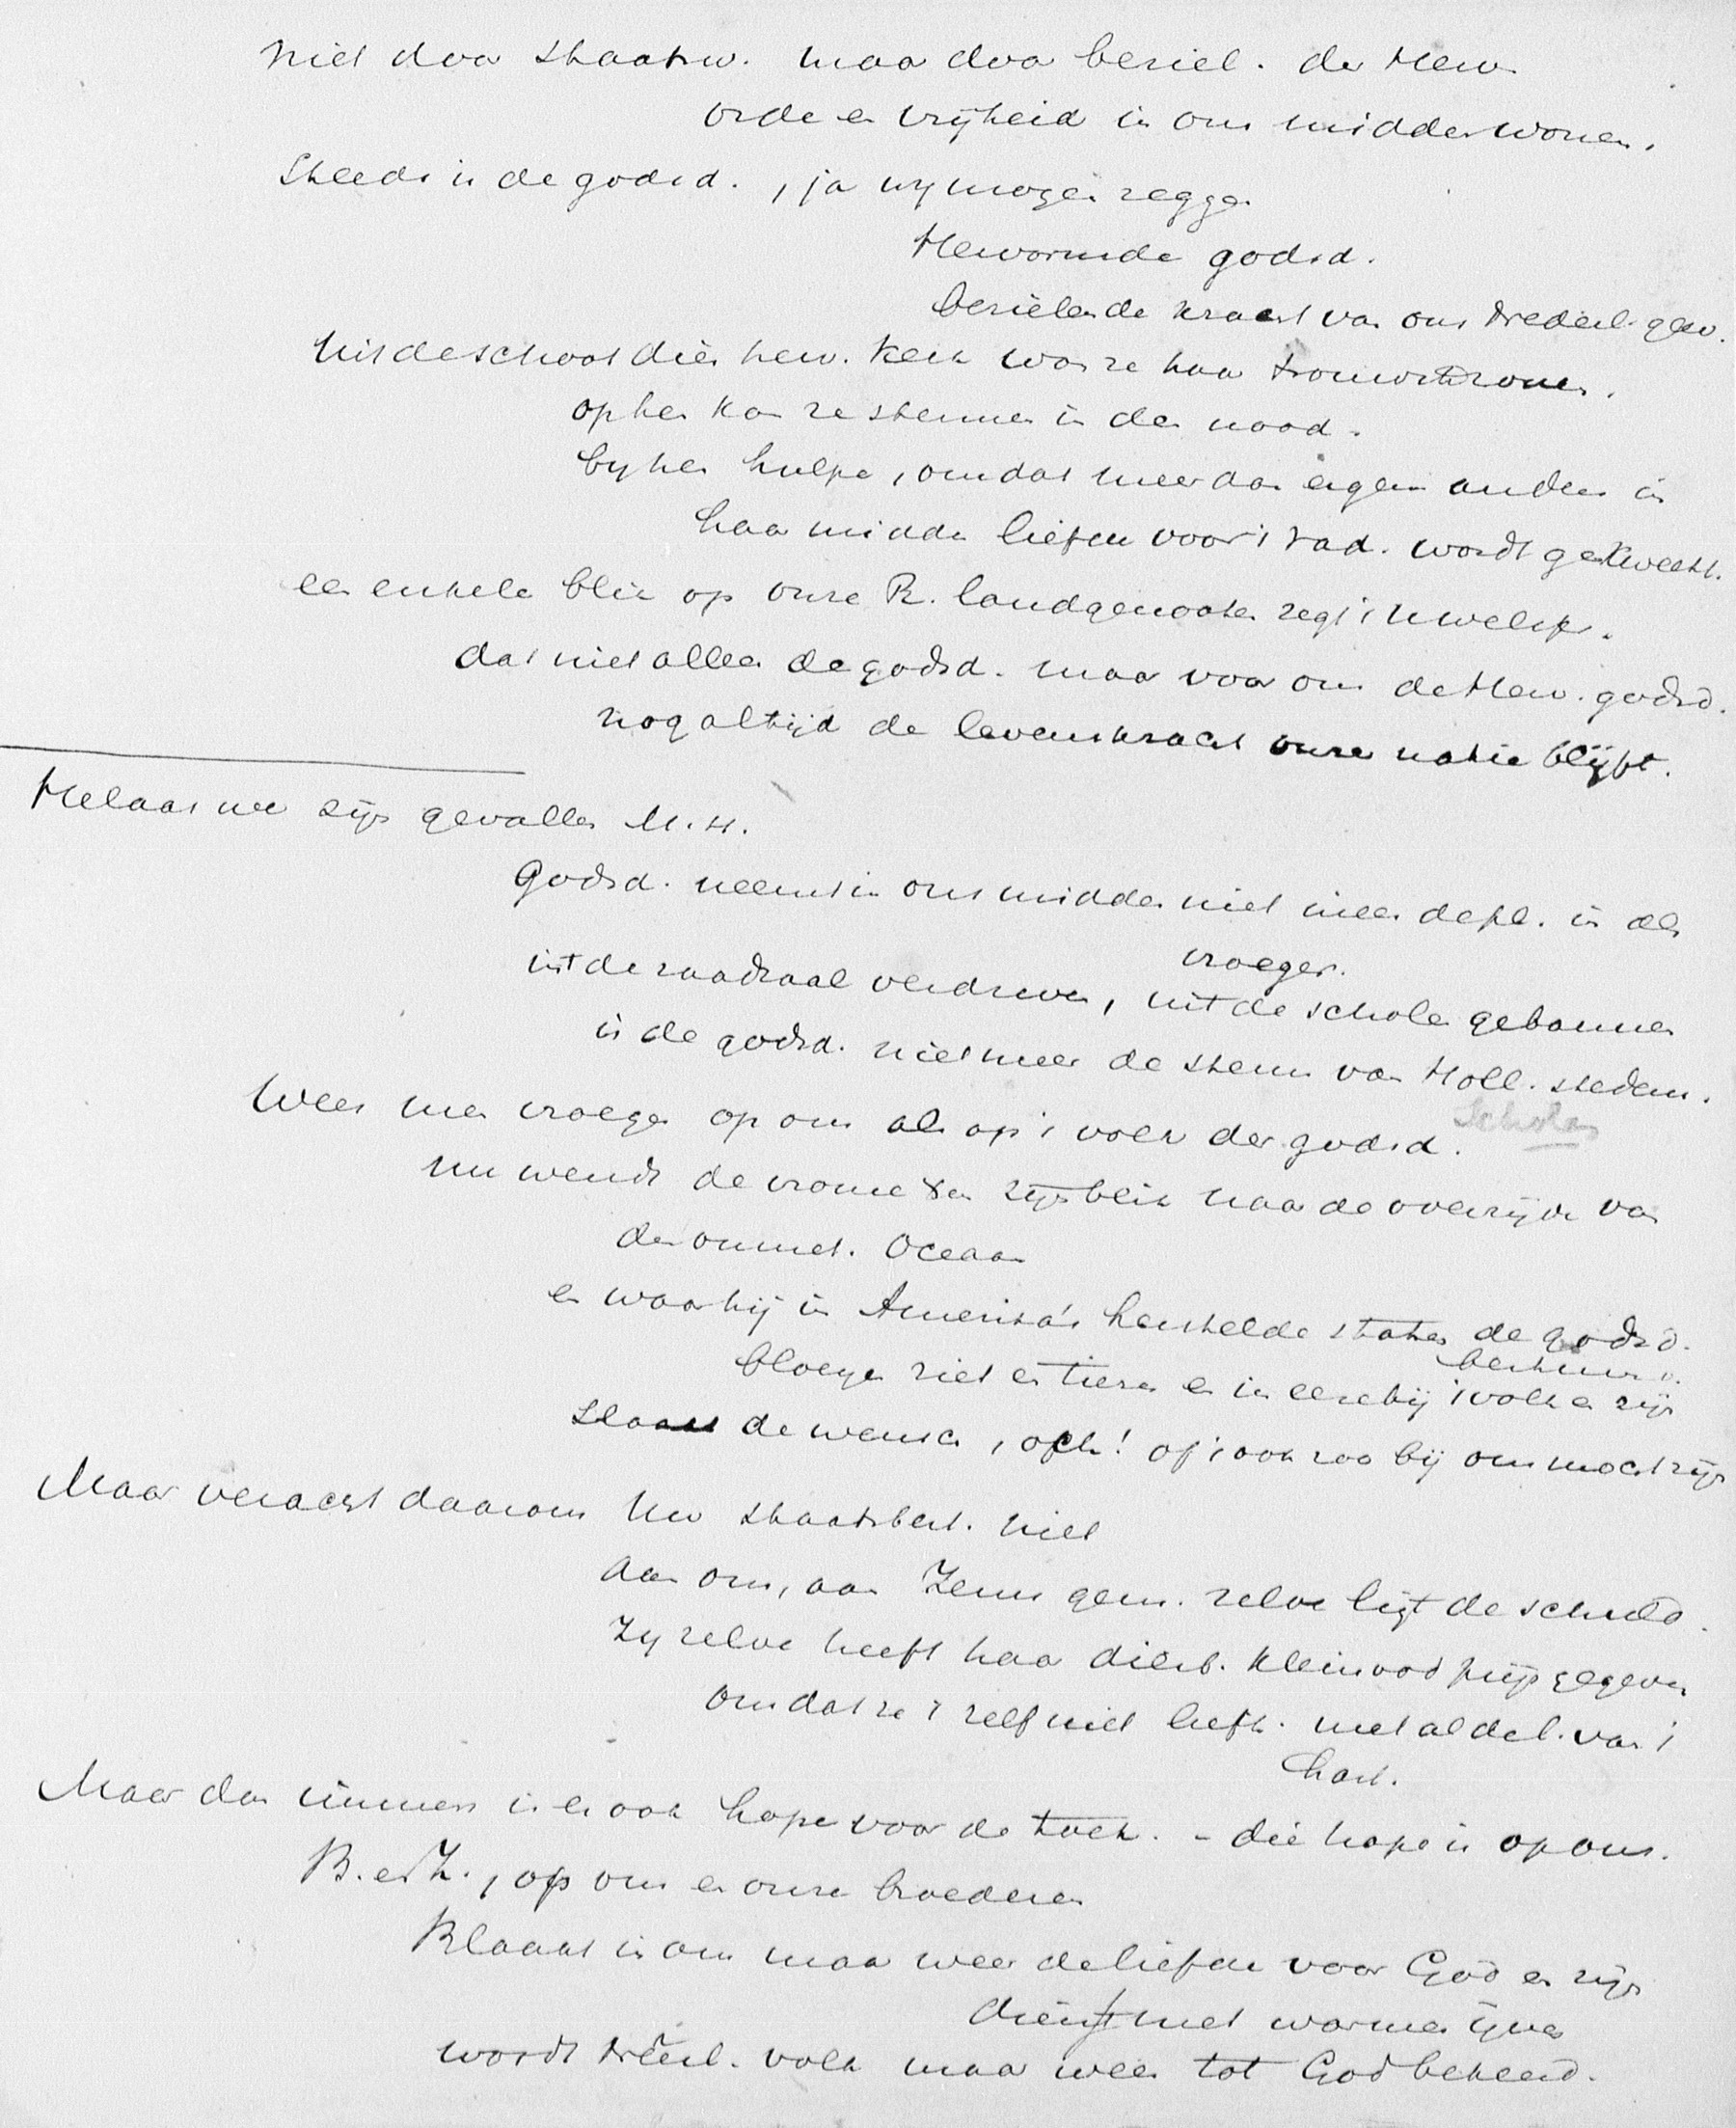 niet door staatsw. maar door beziel. der Herv.
orde en vrijheid in ons midden wonen.
Steeds is de godsd., ja wy mogen zeggen
Hervormde godsd.
bezielende kracht van ons Nederl. gew.
Uit de school dier herv. kerk was ze haar trouwste zonen.
op hen kon ze steunen in den nood.
by hen hulpe, omdat meer dan ergens anders in
haar midden liefde voor 't vad. wordt gekweekt.
een enkele blik op onze R. landgenooten zegt 't U
dat niet alleen de godsd. maar voor ons de Herv. godsd.
nog altijd de levenskracht onzer natie blijft.
Helaas we zijn gevallen M.H.
Godsd. neemt in ons midden niet meer de pl. in als
vroeger.
uit de raadzaal verdreven, uit de scholen gebannen
is de godsd. niet meer de steun van Holl. steden.
Scholen
Wees men vroeger op ons als op 't volk der godsd.
nu wendt de vrome den zijn blik naar de overzijde van
den onmet. Oceaan
en waar hij in Amerika's herstelde staten de godsd.
bloeyen ziet en tieren en in eere bij 't volk en zijn
bestuur
slaakt de wensch, och! of 't ook zoo bij ons mocht zijn
Maar veracht daarom Uw staatsbest. niet
Aan ons, aan Jezus gem. zelve ligt de schuld.
Zy zelve heeft haar dierb. kleinood prijs gegeven
omdat ze 't zelf niet liefh. met al de l. van 't
hart.
Maar dan immers is er ook hope voor de toek. - die hope is op ons.
B. en Z., op ons en onze broederen
Blaakt in ons maar weer de liefde voor God en zijn
dienst met warmen ijver
wordt Nederl. volk maar weer tot God bekeerd.